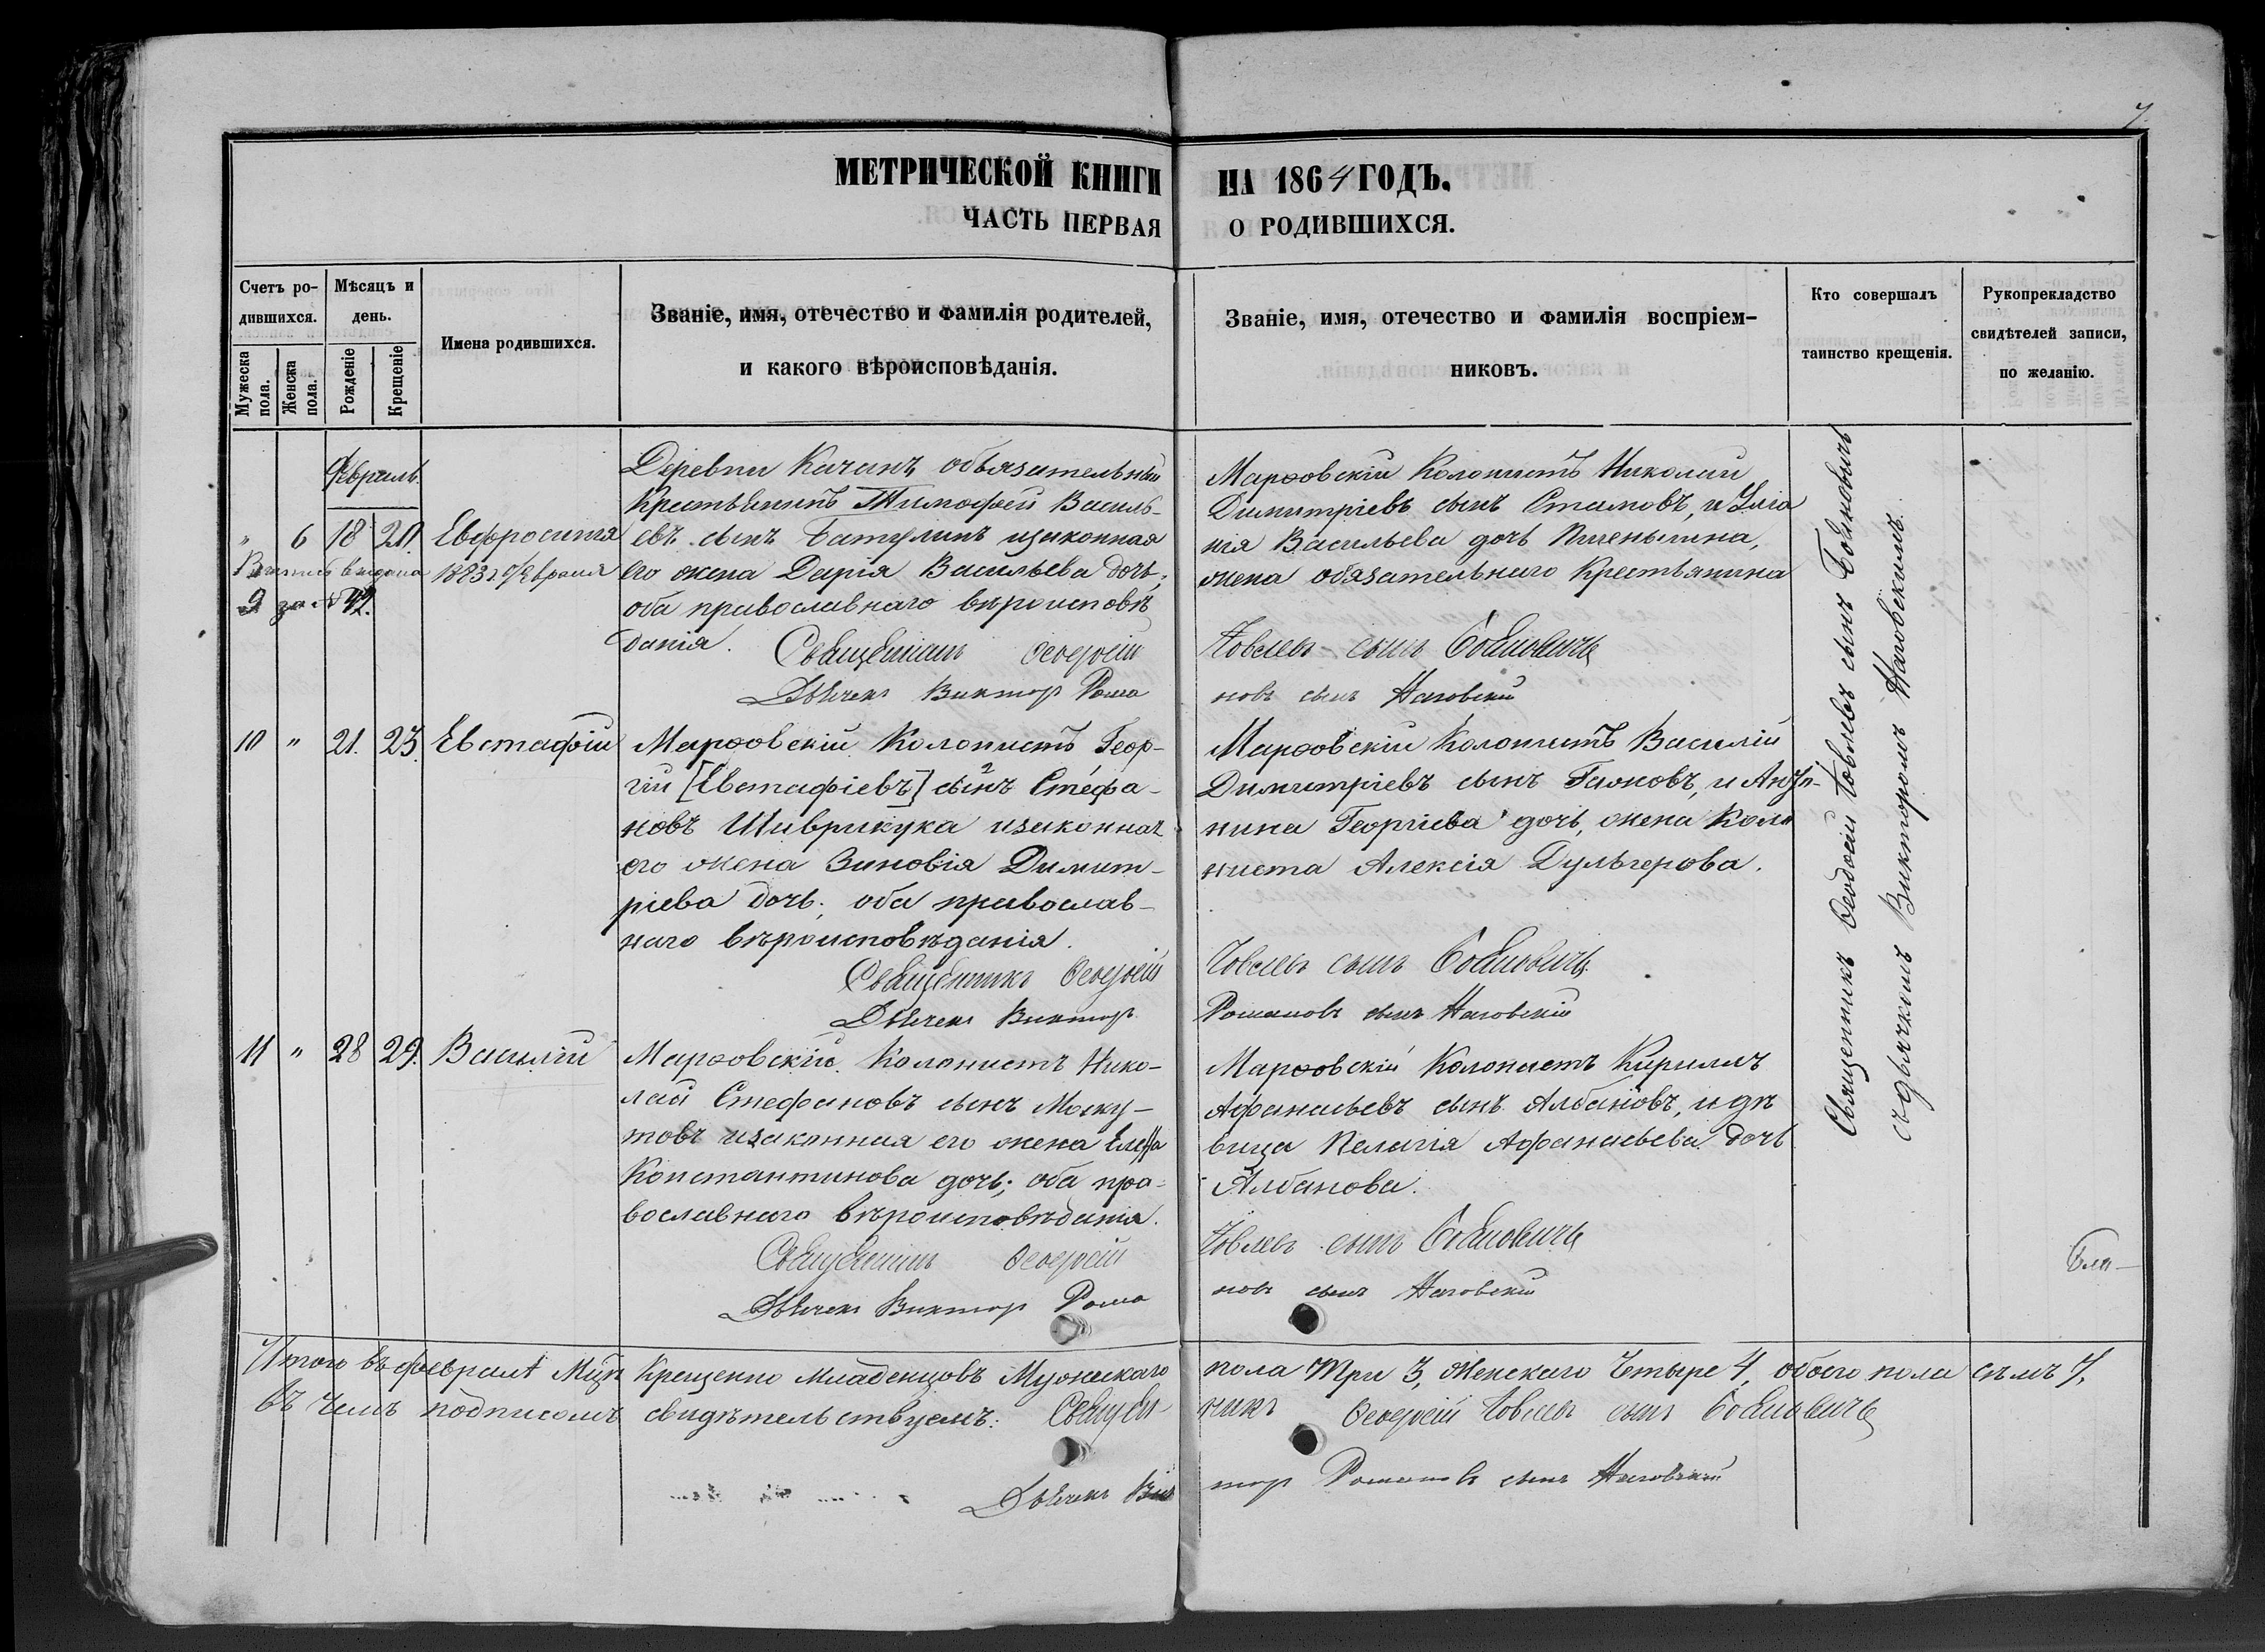 7.
МЕТРИЧЕСКОЙ КНИГИ НА 1864 ГОДЪ.
ЧАСТЬ ПЕРВАЯ О РОДИВШИХСЯ.
Счетъ ро-
дившихся.
Мужеска пола.
Женска пола.
Мѣсяцъ и
день.
Рожденіе
Крещеніе
Имена родившихся.
Званіе, имя, отечество и фамилія родителей,
и какого вѣроисповѣданія.
Званіе, имя, отечество и фамилія воспріем-
никовъ.
Кто совершалъ
таинство крещенія.
Рукоприкладство
свидѣтелей записи,
по желанію.
Февраль.
" 6 18 20. Евфросинія
1883 г. Февраля
9 за № 42.
Деревни Качанъ обязательный
Крестьянинъ Тимофей Василь-
евъ сынъ Батулинъ изаконная
его жена Дарія Васильева дочь;
оба православнаго вѣроисповѣ
данія.
Священникъ Ѳеодосій
Дьячекъ Викторъ Рома
Марѳовскій Колонистъ Николай
Димитріевъ сынъ Стамовъ, и Уліа
нія Васильева дочь
жена обязательнаго Крестьянина
Іовлевъ сынъ Бояновичъ
новъ сынъ Наговскій
10 " 21. 23. Евстафій
Марѳовскій Колонистъ Геор-
гій [Евстафіевъ] сынъ Стефа-
новъ Шиврикука изаконная
его жена Зиновія Димит-
ріева дочь; оба православ-
наго вѣроисповѣданія.
Священникъ Ѳеодосій
Дьячекъ Викторъ
Марѳовскій Колонистъ Василій
Димитріевъ сынъ Гайковъ, и Акули-
нина Георгіева дочь, жена Коло
ниста Алексія Дульгерова.
Іовлевъ сынъ Бояновичъ.
Романовъ сынъ Наговскій
11 " 28 29. Василій
Марѳовскій Колонистъ Нико-
лай Стефановъ сынъ Моску-
товъ изаконная его жена Елена
Константинова дочь; оба пра-
вославнаго вѣроисповѣданія.
Священникъ Ѳеодосій
Дьячекъ Викторъ Рома
Марѳовскій Колонистъ Кириллъ
Афанасьевъ сынъ Албановъ, и дѣ
вица Пелагія Афанасьева дочь
Албанова.
Іовлевъ сынъ Бояновичъ
новъ сынъ Наговскій
Священникъ Ѳеодосій Іовлевъ сынъ Бояновичъ
съ дьячкомъ Викторомъ Наговскимъ.
Итого въ февралѣ Мцѣ Крещенно Младенцовъ Мужескаго пола Три 3, Женскаго Четыре 4, обоего пола семь 7,
въ чемъ подписомъ свидѣтельствуемъ: Священ- никъ Ѳеодосій Іовлевъ сынъ Бояновичъ
Дьячекъ Вик торъ Романовъ сынъ Наговскій